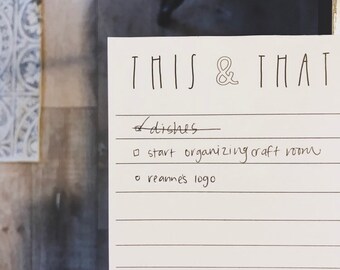 THIS & THAT
dishes
start organizing craft room
reanne's logo